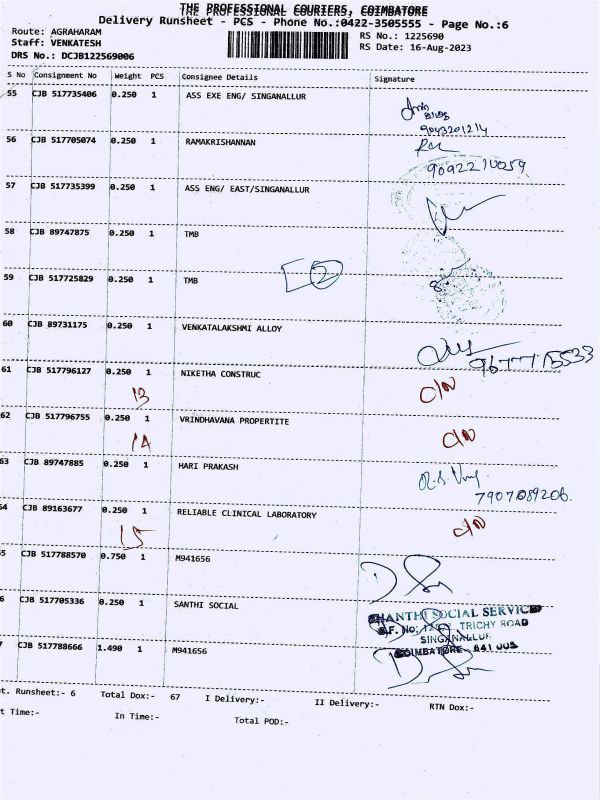 THE PROFESSIONAL COURIERS, COIMBATORE
Delivery Runsheet - PCS - Phone No.:0422-3505555 - Page No.:6
Route: AGRAHARAM
RS No.: 1225690
Staff: VENKATESH
RS Date: 16-Aug-2023
DRS No.: DCJB122569006
S No Consignment No Weight PCS Consignee Details Signature
55 CJB 517735406 0.250 1 ASS EXE ENG/ SINGANALLUR
9043201214
56 CJB 517705074 0.250 1 RAMAKRISHANNAN
9092210059
57 CJB 517735399 0.250 1 ASS ENG/ EAST/SINGANALLUR
58 CJB 89747875 0.250 1 TMB
2
59 CJB 517725829 0.250 1 TMB
60 CJB 89731175 0.250 1 VENKATALAKSHMI ALLOY
9677715533
61 CJB 517796127 0.250 1 NIKETHA CONSTRUC C/N
13
62 CJB 517796755 0.250 1 VRINDHAVANA PROPERTITE C/N
14
63 CJB 89747885 0.250 1 HARI PRAKASH
7907089206
64 CJB 89163677 0.250 1 RELIABLE CLINICAL LABORATORY C/N
15
5 CJB 517788570 0.750 1 M941656
6 CJB 517705336 0.250 1 SANTHI SOCIAL
SHANTHI SOCIAL SERVICE
S.F. No: TRICHY ROAD
SINGANALLUR
COIMBATORE - 641 005
7 CJB 517788666 1.490 1 M941656
t. Runsheet:- 6 Total Dox:- 67 I Delivery:- II Delivery:- RTN Dox:-
t Time:- In Time:- Total POD:-